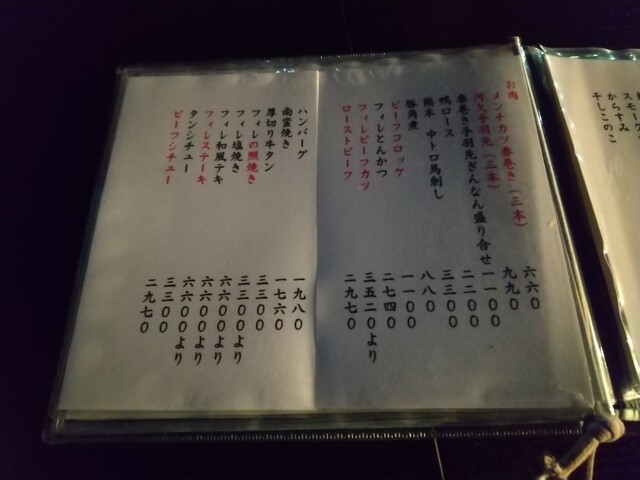 お肉
メンチカツ春巻き(三本) 六六〇
河久手羽先(三本) 九九〇
春巻き手羽先ぎんなん盛り合せ 一一〇〇
鴨ロース 二二〇〇
熊本 中トロ馬刺し 三三〇〇
豚角煮 八八〇
ビーフコロッケ 一一〇〇
フィレとんかつ 二七四〇
フィレビーフカツ 三五二〇より
ローストビーフ 二九七〇
ハンバーグ 一九八〇
南蛮焼き 一七六〇
厚切り牛タン 三三〇〇
フィレの照焼き 三三〇〇より
フィレ塩焼き 六六〇〇より
フィレ和風テキ 六六〇〇より
フィレステーキ 六六〇〇より
タンシチュー 三三〇〇
ビーフシチュー 二九七〇
スモーク
からすみ
干しこのこ